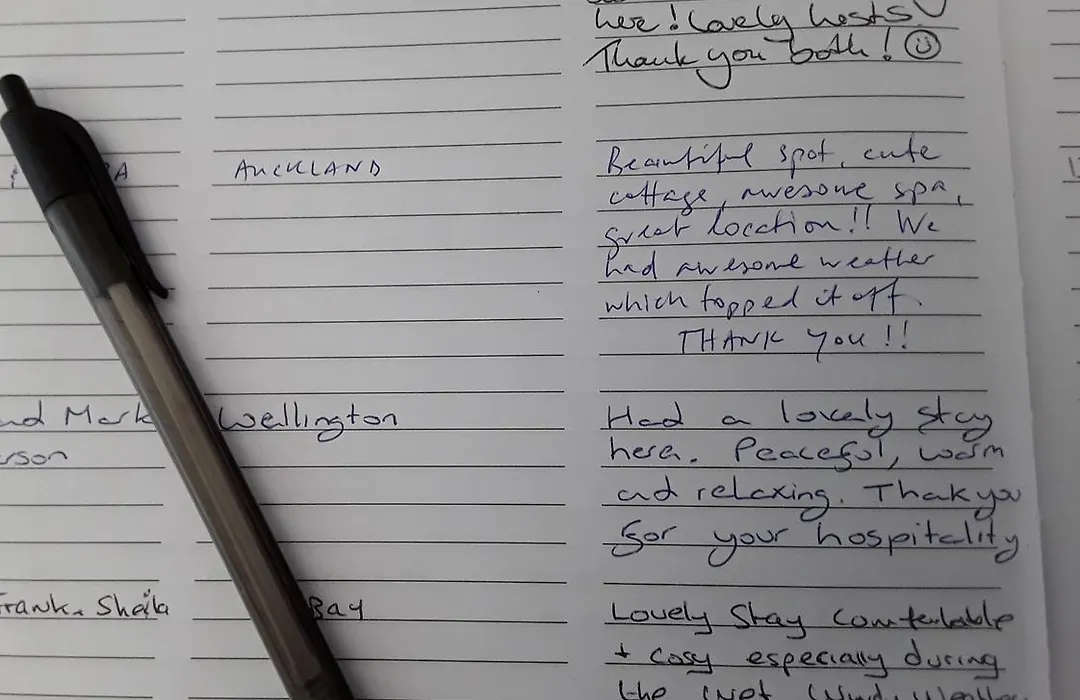 here! Lovely hosts!
Thank you both! ☺
AUCKLAND
Beautiful spot, cute
cottage, awesome spa,
great location!! We
had awesome weather
which topped it off.
THANK YOU!!
nd Mark
rson
Wellington
Had a lovely stay
here. Peaceful, warm
and relaxing. Thak you
for your hospitality
Frank & Sheila
Bay
Lovely Stay Comfortable
+ cosy especially during
the Wet Windy Weather